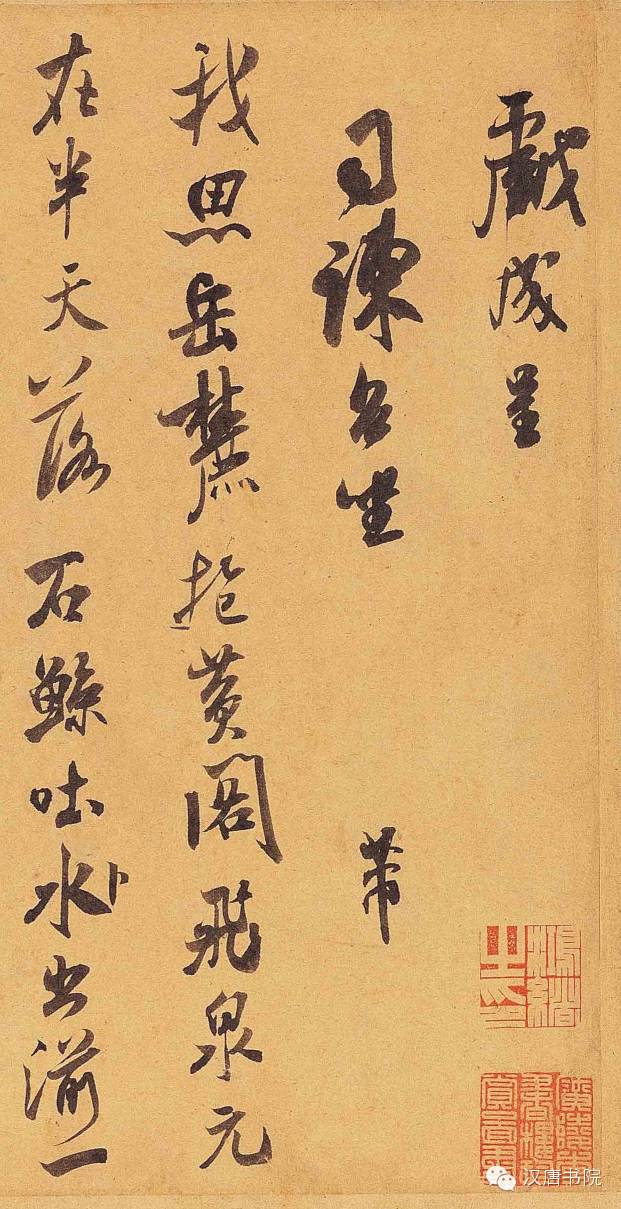 戲成呈
司諫台坐
芾
我思岳麓抱黄閣飛泉元
在半天落石鯨吐水出湔一
鴻緒之印
汉唐书院